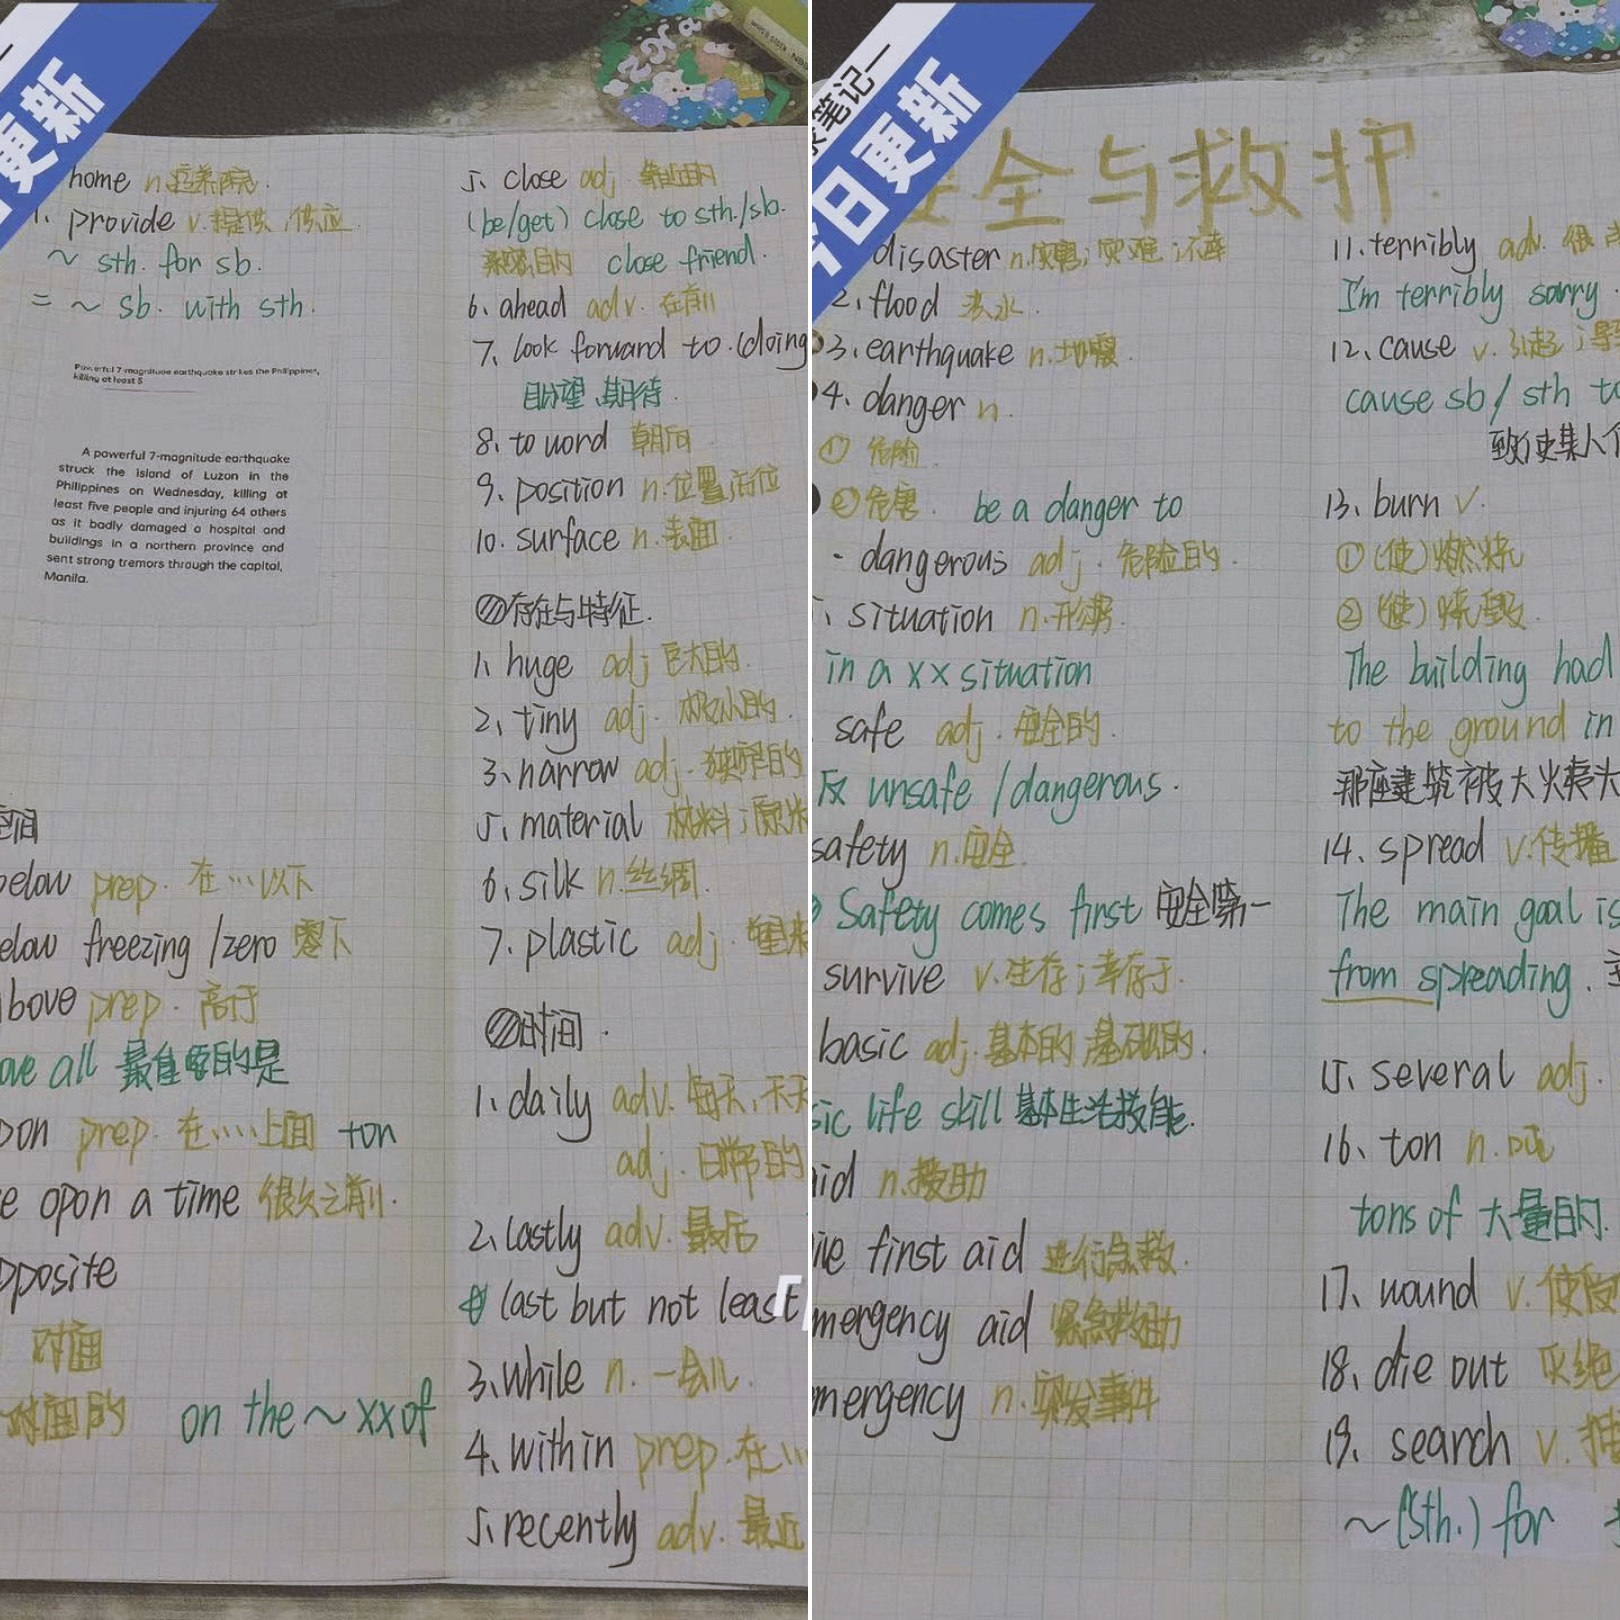 更新
home n.疗养院.
1. provide v.提供,供应
~ sth. for sb.
= ~ sb. with sth.
Powerful 7-magnitude earthquake strikes the Philippines,
killing at least 5
A powerful 7-magnitude earthquake
struck the island of Luzon in the
Philippines on Wednesday, killing at
least five people and injuring 64 others
as it badly damaged a hospital and
buildings in a northern province and
sent strong tremors through the capital,
Manila.
空间
below prep. 在…以下
below freezing /zero 零下
above prep. 高于
ove all 最重要的是
pon prep. 在……上面 ton
e opon a time 很久之前.
pposite
对面
对面的 on the ~ xx of
5、close adj. 靠近的
(be/get) close to sth./sb.
亲密的 close friend.
6、ahead adv. 在前
7、look forward to.(doing
盼望、期待.
8、toword 朝向
9、position n.位置;方位
10. surface n.表面.
存在与特征.
1、huge adj 巨大的.
2、tiny adj. 极小的.
3、narrow adj. 狭窄的
5、material 材料;原料
6、silk n.丝绸.
7、plastic adj. 塑料
时间.
1、daily adv. 每天,天天
adj. 日常的
2、lastly adv. 最后
last but not least
3、while n. 一会儿.
4、within prep.在…
5、recently adv. 最近
笔记一
日更新
安全与救护.
disaster n.灾害;灾难;不幸
2、flood 洪水.
3、earthquake n.地震.
4、danger n.
① 危险.
② 危害. be a danger to
- dangerous adj. 危险的.
、situation n.形势.
in a xx situation
safe adj. 安全的.
反 unsafe /dangerous.
safety n.安全.
Safety comes first 安全第一
survive v.生存;幸存于.
basic adj.基本的;基础的.
sic life skill 基本生活技能.
aid n.援助
ive first aid 进行急救.
mergency aid 紧急救助
mergency n.突发事件
11.terribly adv. 很
I'm terribly sorry.
12、cause v. 引起;导
cause sb/ sth to
致使某人
13、burn v.
①(使)燃烧
②(使)烧毁.
The building had
to the ground in
那座建筑被大火烧
14、spread v.传播
The main goal is
from spreading.
15、several adj.
16、ton n.吨
tons of 大量的.
17、wound v.使
18、die out 灭绝
19、search v.搜
~ (sth.) for